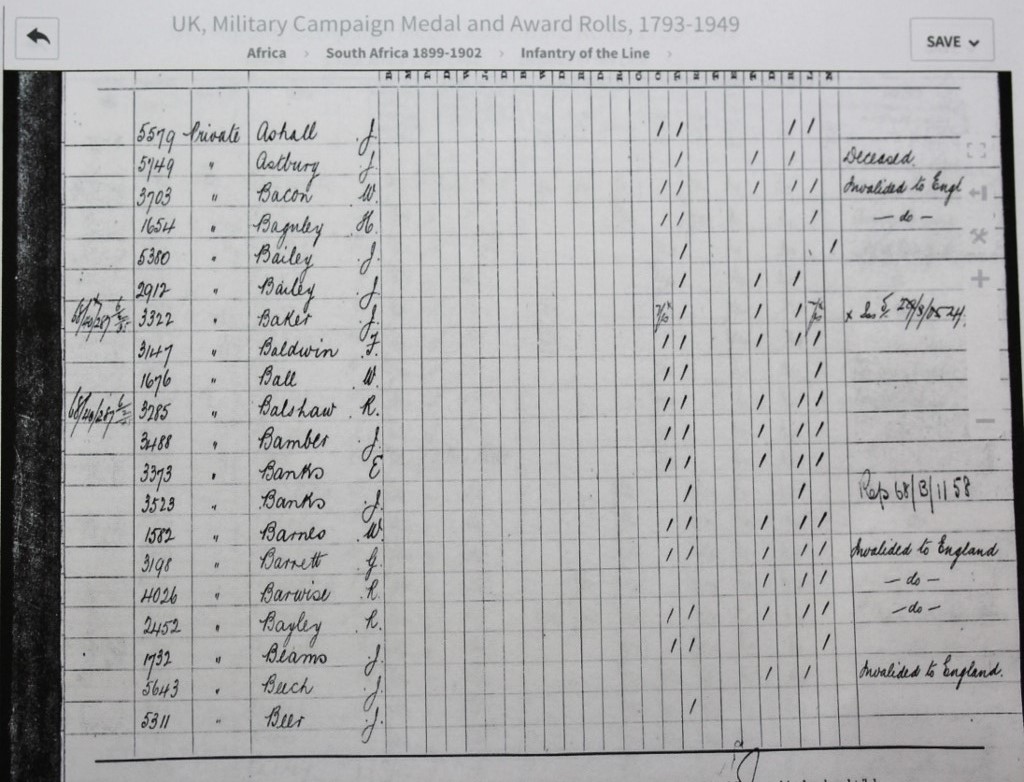 UK, Military Campaign Medal and Award Rolls, 1793-1949
SAVE
Africa > South Africa 1899-1902 > Infantry of the Line >
5579 Private Ashall J. / / / /
5749 " Astbury J. / / / Deceased.
3703 " Bacon W. / / / / / Invalided to Engl
1654 " Baguley H. / / / — do —
5380 " Bailey J. / /
2912 " Bailey J. / / /
3322 " Baker J. / / /
3147 " Baldwin F. / / / / /
1676 " Ball W. / / /
3285 " Balshaw R. / / / / /
3488 " Bamber J. / / / / /
3373 " Banks E / / / / /
3523 " Banks J. / / Rep 68/B/1158
1582 " Barnes W. / / / / /
3198 " Barrett G. / / / / / Invalided to England
4026 " Barwise R. / / / — do —
2452 " Bayley R. / / / / / — do —
1732 " Beams J. / / /
5643 " Beech J. / / Invalided to England.
5311 " Beer J. /